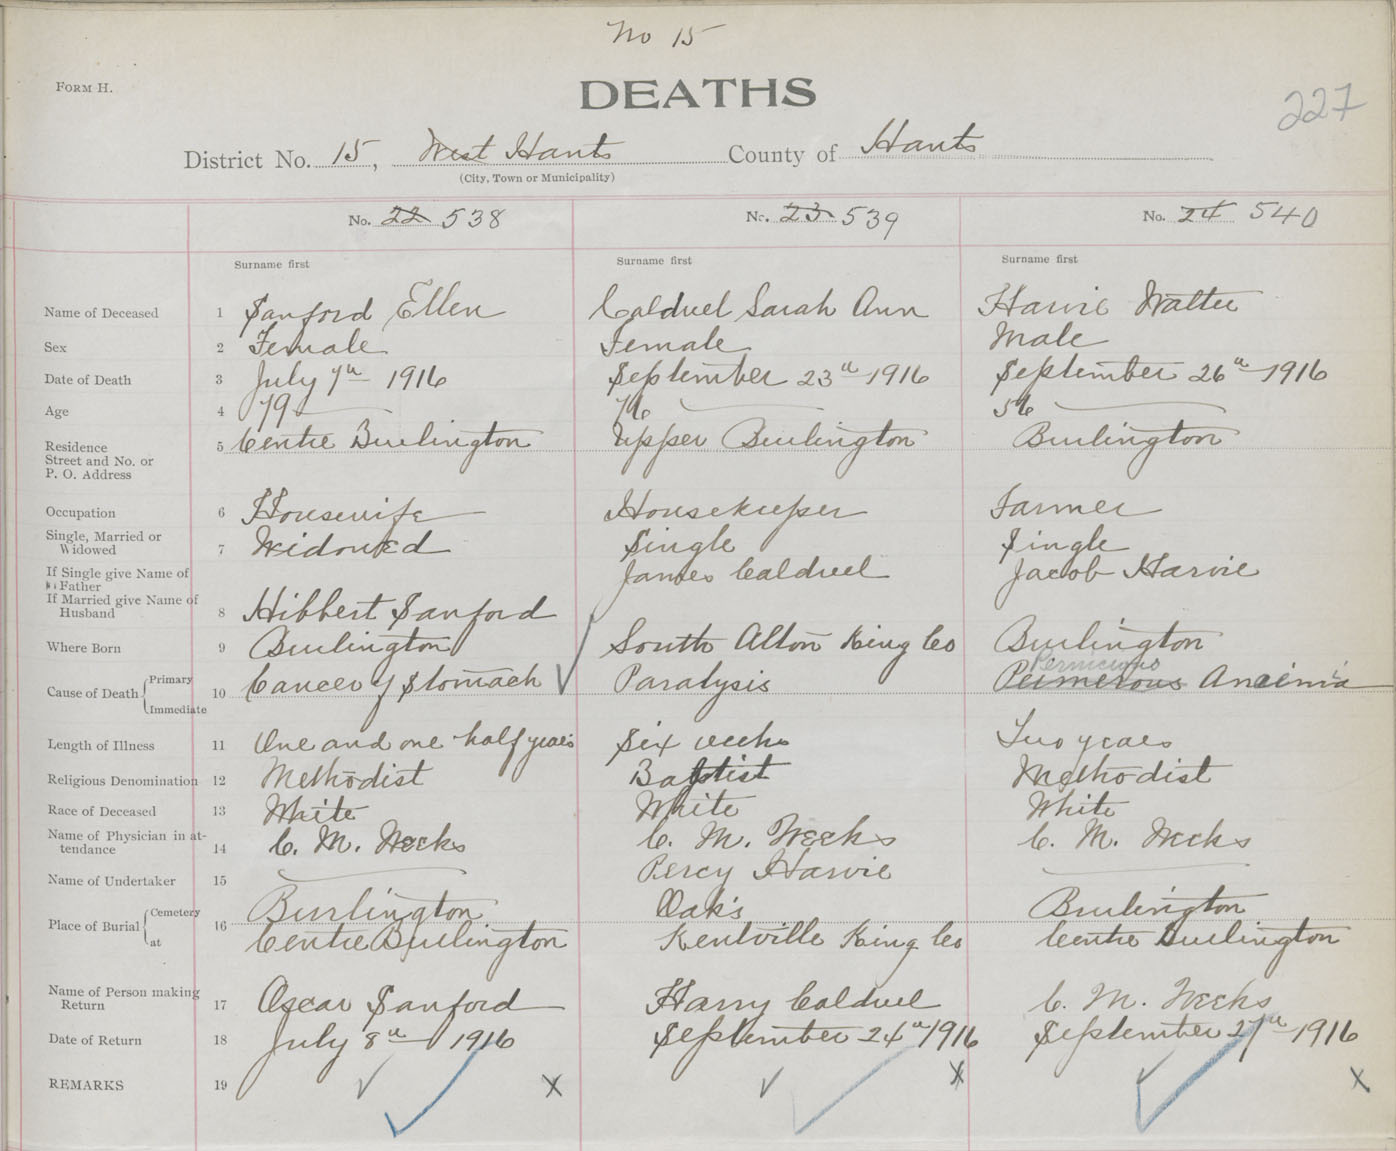 No 15
Form H.
DEATHS
227
District No. 15, West Hants County of Hants
(City, Town or Municipality)
No. 22 538 No. 23 539 No. 24 540
Surname first Surname first Surname first
Name of Deceased 1 Sanford Ellen Caldwel Sarah Ann Harvie Walter
Sex 2 Female Female Male
Date of Death 3 July 7th 1916 September 23th 1916 September 26th 1916
Age 4 79 76 56
Residence
Street and No. or
P. O. Address 5 Centre Burlington Upper Burlington Burlington
Occupation 6 Housewife Housekeeper Farmer
Single, Married or
Widowed 7 Widowed Single Single
If Single give Name of
Father James Caldwel Jacob Harvie
If Married give Name of
Husband 8 Hibbert Sanford
Where Born 9 Burlington South Alton King Co Burlington
Pernicious
Cause of Death Primary 10 Cancer of Stomach Paralysis Peimerous Anaémia
Immediate
Length of Illness 11 One and one half years Six weeks Two years
Religious Denomination 12 Methodist Baptist Methodist
Race of Deceased 13 White White White
Name of Physician in at-
tendance 14 C. M. Weeks C. M. Weeks C. M. Weeks
Name of Undertaker 15 Percy Harvie
Place of Burial Cemetery 16 Burlington Oak's Burlington
at Centre Burlington Kentville King Co Centre Burlington
Name of Person making
Return 17 Oscar Sanford Harry Caldwel C. M. Weeks
Date of Return 18 July 8th 1916 September 24th 1916 September 27th 1916
REMARKS 19 x x x